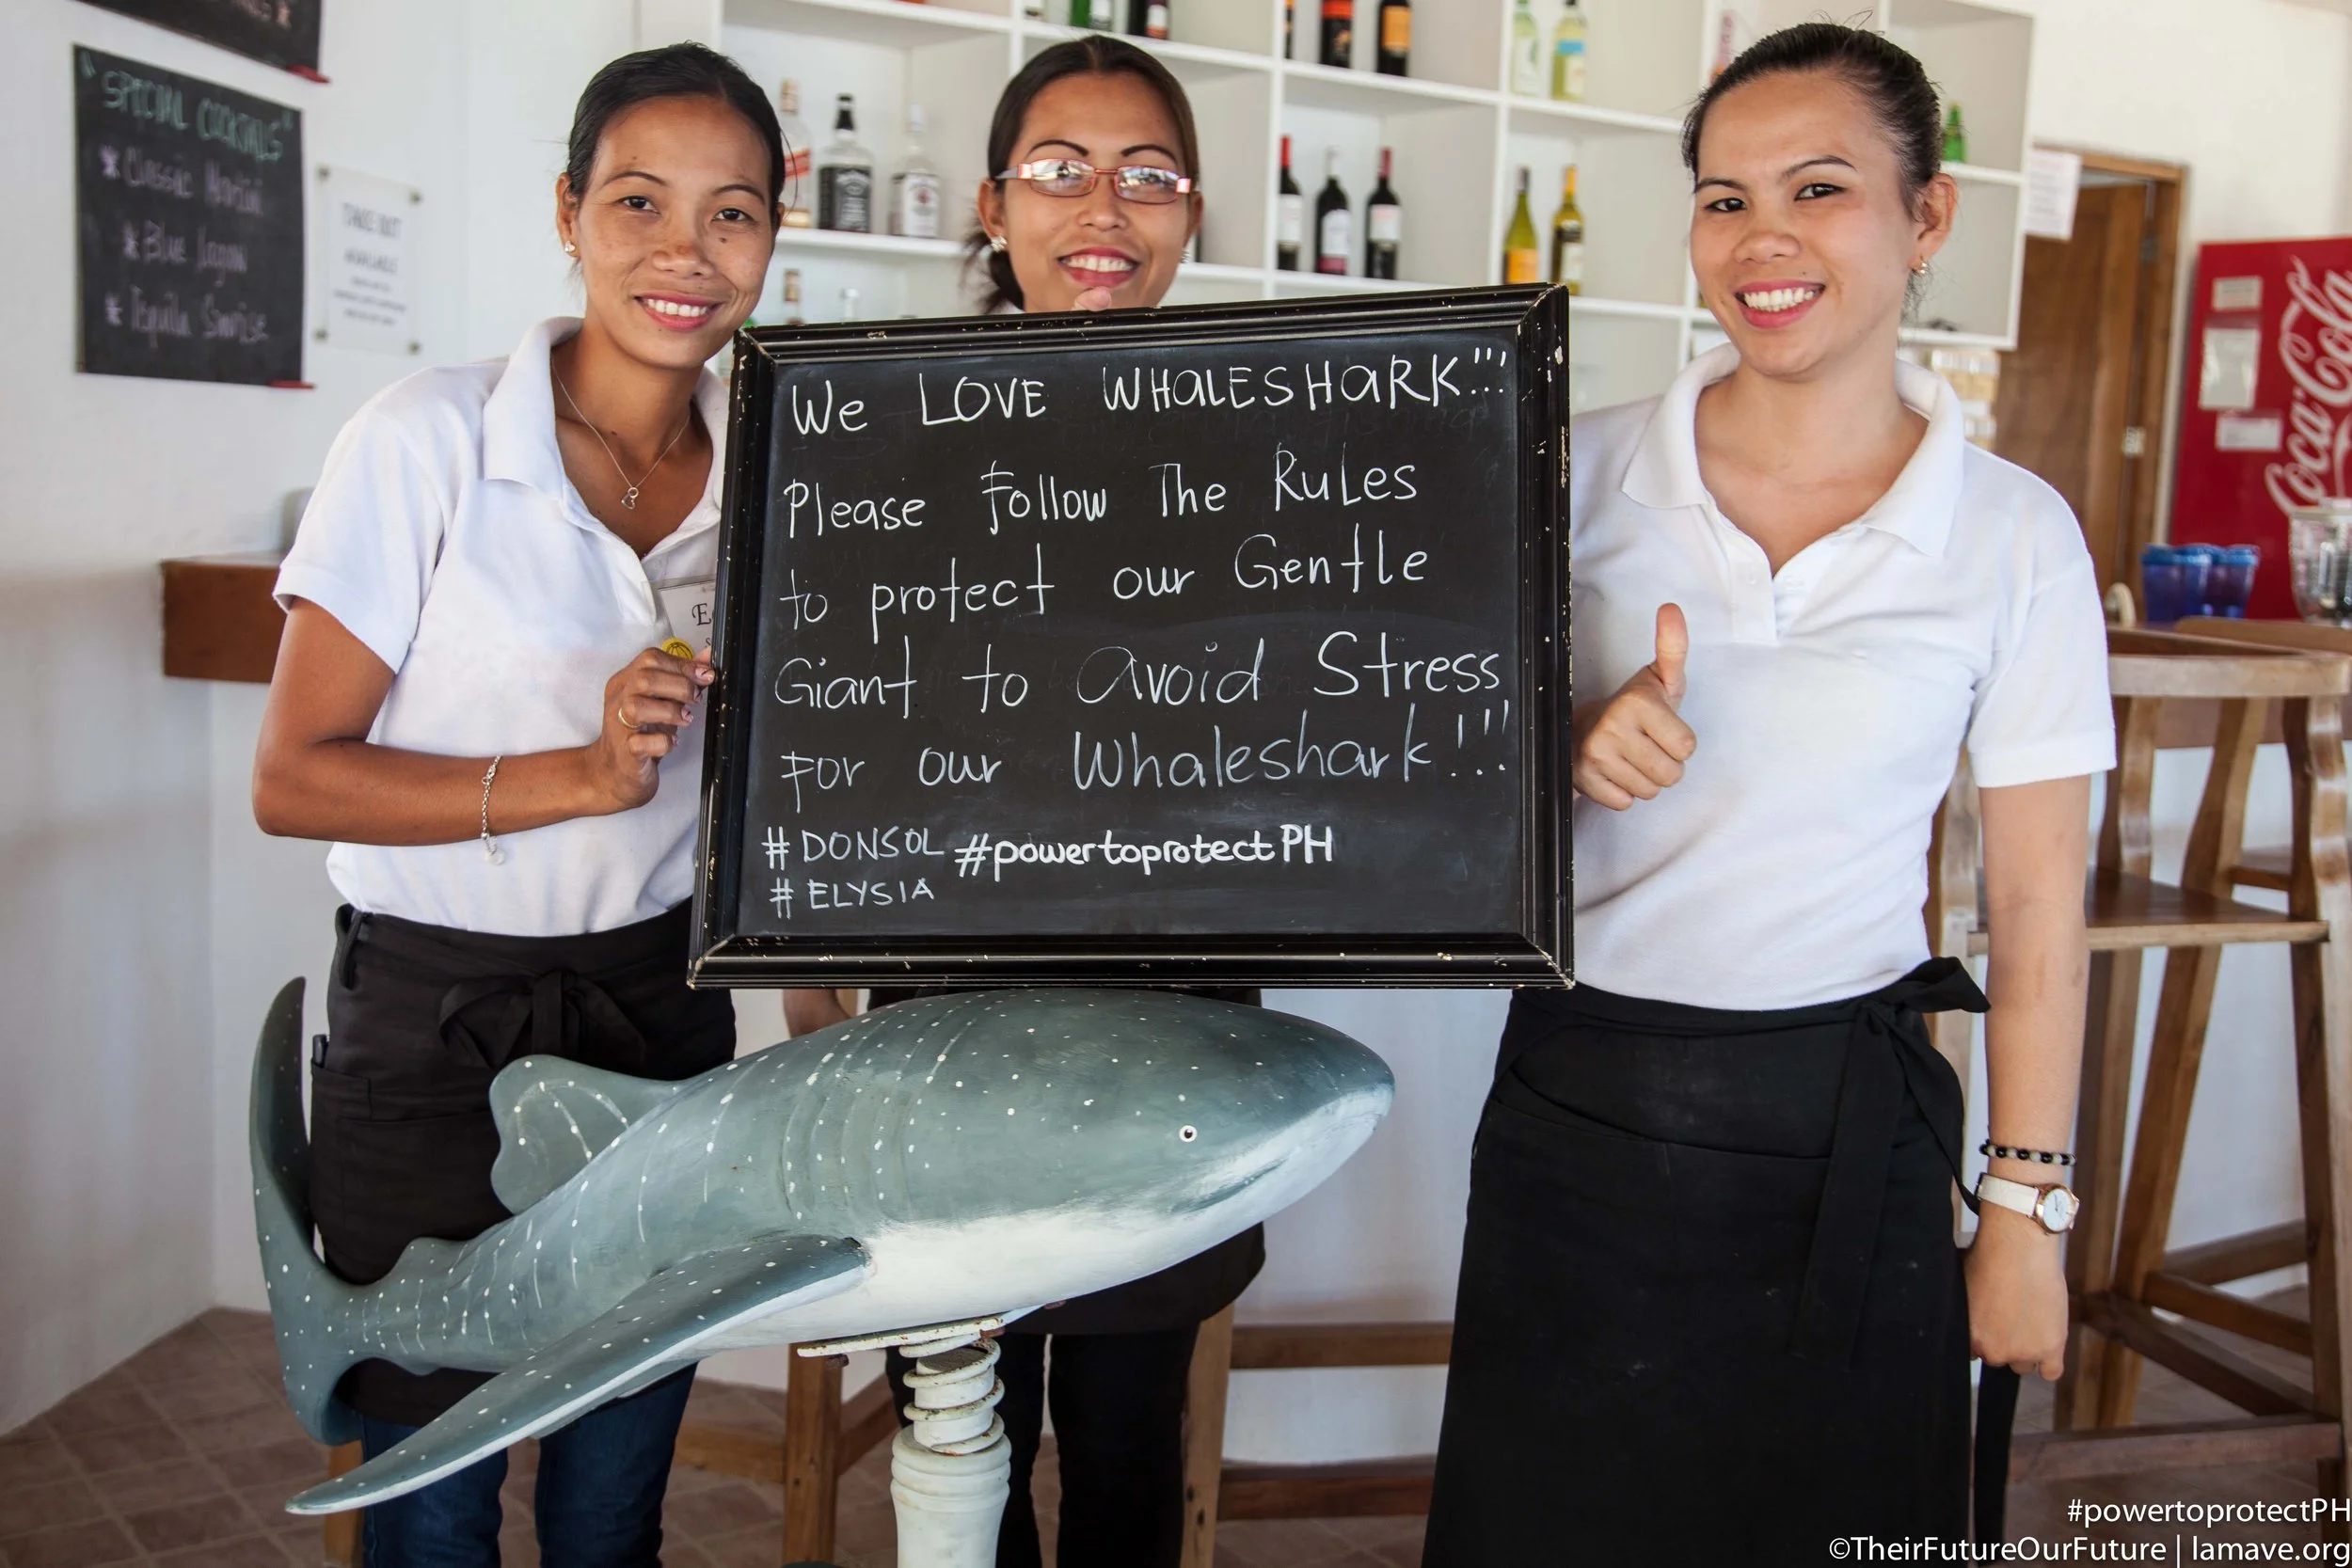 "SPECIAL COCKTAILS"
* Classic Martini
* Blue Lagoon
* Tequila Sunrise
TAKE OUT
AVAILABLE
We LOVE WHALESHARK!!!
Please Follow The Rules
to protect our Gentle
Giant to Avoid Stress
For our Whaleshark!!!
#DONSOL #powertoprotectPH
#ELYSIA
Coca-Cola
#powertoprotectPH
©TheirFutureOurFuture | lamave.org